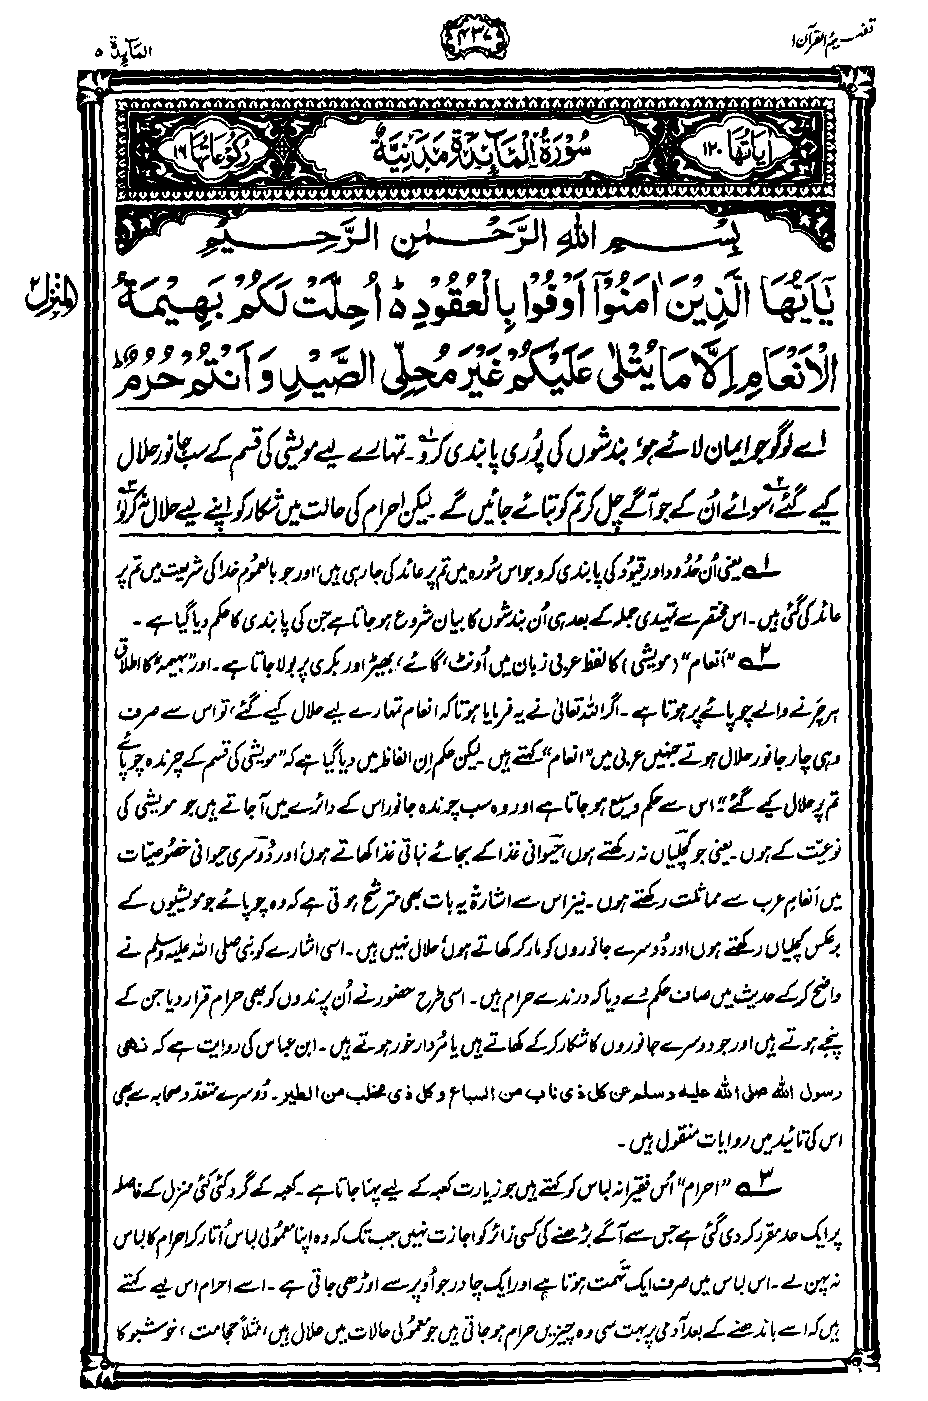 تفہیم القرآن ۱
۴۳۷
المآئدۃ ۵
اٰیاتہا ۱۲۰
سُوْرَۃُ الْمَآئِدَۃِ مَدَنِیَّۃٌ
رکوعاتہا ۱۶
بِسْمِ اللهِ الرَّحْمٰنِ الرَّحِیْمِ
یٰۤاَیُّهَا الَّذِیْنَ اٰمَنُوْۤا اَوْفُوْا بِالْعُقُوْدِ ؕ اُحِلَّتْ لَكُمْ بَهِیْمَةُ
المنزل ۲
الْاَنْعَامِ اِلَّا مَا یُتْلٰى عَلَیْكُمْ غَیْرَ مُحِلِّی الصَّیْدِ وَ اَنْتُمْ حُرُمٌ ؕ
اے لوگو جو ایمان لائے ہو، بندشوں کی پُوری پابندی کرو۱۔ تمہارے لیے مویشی کی قسم کے سب جانور حلال
کیے گئے۲، سوائے اُن کے جو آگے چل کر تم کو بتائے جائیں گے۔ لیکن اِحرام کی حالت میں شکار کو اپنے لیے حلال نہ کر لو۳
۱ یعنی اُن حُدُود اور قیُود کی پابندی کرو جو اس سُورہ میں تم پر عائد کی جا رہی ہیں، اور جو بالعمُوم خدا کی شریعت میں تم پر
عائد کی گئی ہیں۔ اس مختصر سے تمہیدی جملہ کے بعد ہی اُن بندشوں کا بیان شروع ہو جاتا ہے جن کی پابندی کا حکم دیا گیا ہے۔
۲ ”اَنعام“ (مویشی) کا لفظ عربی زبان میں اُونٹ، گائے، بھیڑ اور بکری پر بولا جاتا ہے۔ اور ”بہیمہ“ کا اطلاق
ہر چرنے والے چوپائے پر ہوتا ہے۔ اگر اللہ تعالیٰ نے یہ فرمایا ہوتا کہ انعام تمہارے لیے حلال کیے گئے، تو اس سے صرف
وہی چار جانور حلال ہوتے جنہیں عربی میں ”انعام“ کہتے ہیں۔ لیکن حکم اِن الفاظ میں دیا گیا ہے کہ ”مویشی کی قسم کے چرندہ چوپائے
تم پر حلال کیے گئے“، اس سے حکم وسیع ہو جاتا ہے اور وہ سب چرندہ جانور اس کے دائرے میں آ جاتے ہیں جو مویشی کی
نوعیّت کے ہوں۔ یعنی جو کچلیاں نہ رکھتے ہوں، حیَوانی غذا کے بجائے نباتی غذا کھاتے ہوں، اور دُوسری حیوانی خصُوصیّات
میں اَنعامِ عرب سے مماثلت رکھتے ہوں۔ نیز اس سے اشارۃً یہ بات بھی مترشح ہوتی ہے کہ وہ چوپائے جو مویشیوں کے
برعکس کچلیاں رکھتے ہوں اور دُوسرے جانوروں کو مار کر کھاتے ہوں، حلال نہیں ہیں۔ اسی اشارے کو نبی صلی اللہ علیہ وسلم نے
واضح کر کے حدیث میں صاف حکم دے دیا کہ درندے حرام ہیں۔ اسی طرح حضورؐ نے اُن پرندوں کو بھی حرام قرار دیا جن کے
پنجے ہوتے ہیں اور جو دوسرے جانوروں کا شکار کر کے کھاتے ہیں یا مُردار خور ہوتے ہیں۔ ابن عباس کی روایت ہے کہ نھی
رسول اللہ صلی اللہ علیہ وسلم عن کل ذی ناب من السباع و کل ذی مخلب من الطیر۔ دُوسرے متعدّد صحابہ سے بھی
اس کی تائید میں روایات منقول ہیں۔
۳ ”احرام“ اُس فقیرانہ لباس کو کہتے ہیں جو زیارتِ کعبہ کے لیے پہنا جاتا ہے۔ کعبہ کے گرد کئی کئی منزل کے فاصلہ
پر ایک حد مقرر کر دی گئی ہے جس سے آگے بڑھنے کی کسی زائر کو اجازت نہیں جب تک کہ وہ اپنا معمُولی لباس اُتار کر احرام کا لباس
نہ پہن لے۔ اس لباس میں صرف ایک تَہمت ہوتا ہے اور ایک چادر جو اُوپر سے اوڑھی جاتی ہے۔ اسے احرام اس لیے کہتے
ہیں کہ اسے باندھنے کے بعد آدمی پر بہت سی وہ چیزیں حرام ہو جاتی ہیں جو معمُولی حالات میں حلال ہیں، مثلاً حجامت، خوشبو کا